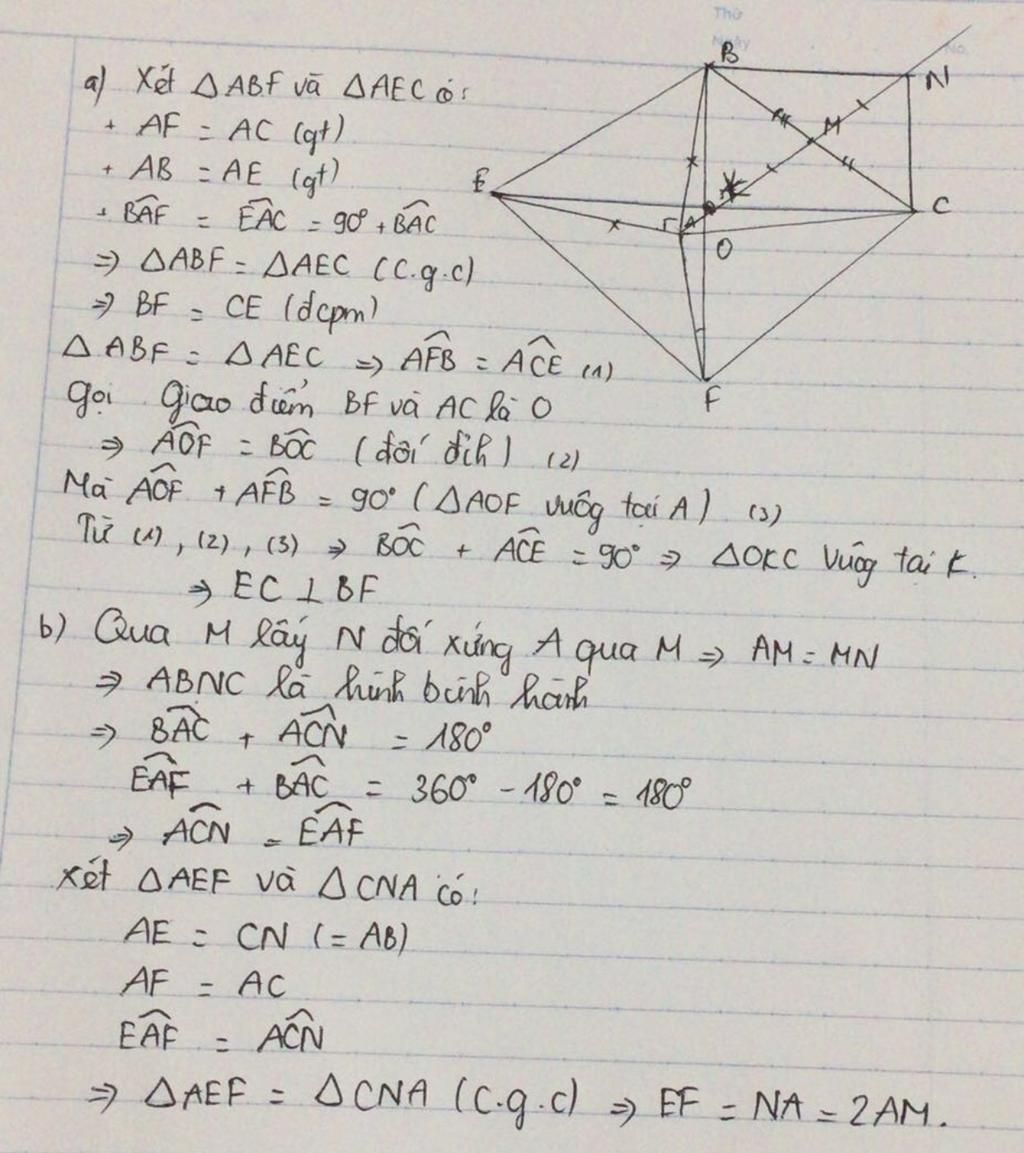 Thứ
Ngày
No.
a) Xét △ABF và △AEC có:
+ AF = AC (gt)
+ AB = AE (gt)
+ \widehat{BAF} = \widehat{EAC} = 90° + \widehat{BAC}
⇒ △ABF = △AEC (C.g.c)
⇒ BF = CE (đcpm)
△ABF = △AEC ⇒ \widehat{AFB} = \widehat{ACE} (1)
Gọi Giao điểm BF và AC là O
⇒ \widehat{AOF} = \widehat{BOC} (đối đỉh) (2)
Mà \widehat{AOF} + \widehat{AFB} = 90° (△AOF vuôg tại A) (3)
Từ (1), (2), (3) ⇒ \widehat{BOC} + \widehat{ACE} = 90° ⇒ △OKC Vuôg tại K.
⇒ EC ⊥ BF
b) Qua M lấy N đối xứng A qua M ⇒ AM = MN
⇒ ABNC là hình bình hành
⇒ \widehat{BAC} + \widehat{ACN} = 180°
\widehat{EAF} + \widehat{BAC} = 360° - 180° = 180°
⇒ \widehat{ACN} = \widehat{EAF}
Xét △AEF và △CNA có:
AE = CN (= AB)
AF = AC
\widehat{EAF} = \widehat{ACN}
⇒ △AEF = △CNA (C.g.c) ⇒ EF = NA = 2AM.
B
N
M
E
K
C
A
O
F